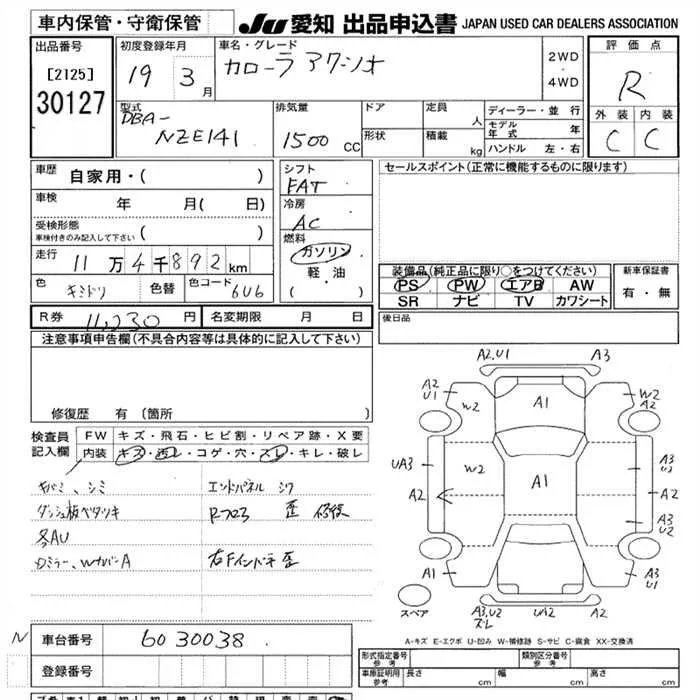 車内保管・守衛保管
JU 愛知 出品申込書 JAPAN USED CAR DEALERS ASSOCIATION
出品番号
[2125]
30127
初度登録年月
19 3月
車名・グレード
カローラ アクシオ
2WD
4WD
評価点
R
外装 内装
C C
型式
DBA-
NZE141
排気量
1500 CC
ドア
形状
定員 人
積載 kg
ディーラー・並行
モデル年式 年
ハンドル 左・右
車歴
自家用・( )
車検 年 月( 日)
受検形態
車検付きのみ記入して下さい ( )
走行 11万4千892km
色 キミドリ 色替 色コード 6U6
シフト
FAT
冷房
AC
燃料
ガソリン
軽・油
( )
セールスポイント(正常に機能するものに限ります)
装備品(純正品に限り○をつけてください)
PS PW エアB AW
SR ナビ TV カワシート
新車保証書
有・無
R券 11,230円 名変期限 月 日
後日品
注意事項申告欄(不具合内容等は具体的に記入して下さい)
修復歴 有(箇所 )
検査員記入欄
FW キズ・飛石・ヒビ割・リペア跡・X要
内装 キズ・汚レ・コゲ・穴・スレ・キレ・破レ
キバミ、シミ エンドパネル シワ
ダッシュ板ベタツキ Rフロア 歪 修復
各AU
Dミラー、WナバーA 右Fインパネ 歪
A2,U1 A3
A2 U1 W2 A1 W2 A2
UA3 W2 A1 A3 U2
A2 A2
A3 U2
A1 A3 U1
スペア
A3,U2 ズレ UA2 A2
A-キズ E-エクボ U-凹み W-補修跡 S-サビ C-腐食 XX-交換済
N 車台番号 6030038
登録番号
形式指定番号 参考
類別区分番号 参考
車庫証明用 参考 長さ cm 幅 cm 高さ cm